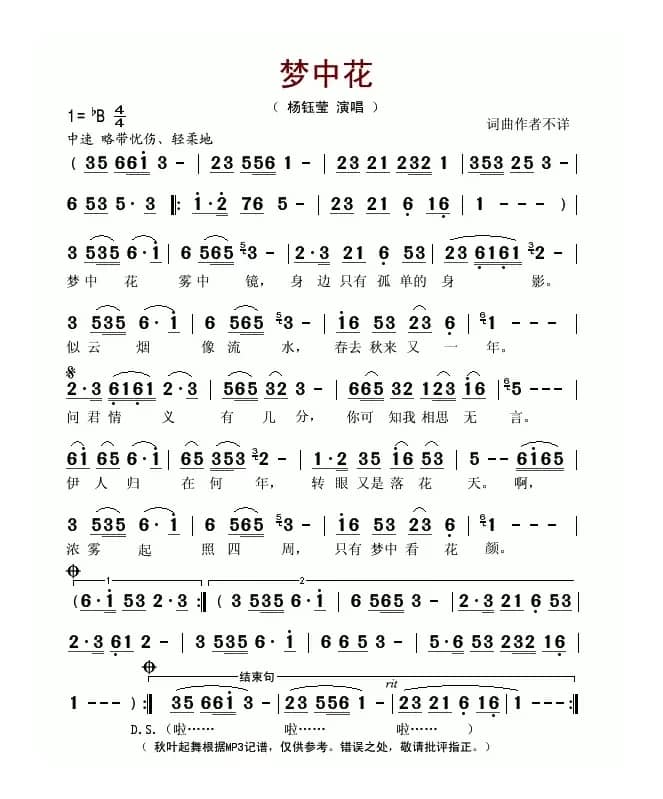 梦中花
( 杨钰莹 演唱 )
1= ♭B 4/4
词曲作者不详
中速 略带忧伤、轻柔地
( 35 661 3 - | 23 5561 - | 23 21 232 1 | 353 253 5 |
6 53 5· 3 ‖: 1·2 76 5 - | 23 21 6 16 | 1 - - - ) |
3 535 6·1 | 6 565 5 3 - | 2·3 21 6 53 | 23 6161 3 2 - |
梦 中 花 雾 中 镜, 身 边 只有 孤 单的 身 影。
3 535 6·1 | 6 565 5 3 - | 16 53 23 6 | 6 1 - - - |
似 云 烟 像 流 水, 春去 秋来 又 一 年。
2·3 6161 2·3 | 565 32 3 - | 665 32 123 16 | 5 - - - |
问 君 情 义 有 几 分, 你可 知我 相思 无 言。
61 65 6·1 | 65 353 3 2 - | 1·2 35 16 53 | 5 - - 6165 |
伊 人 归 在 何 年, 转 眼 又是 落 花 天。 啊,
3 535 6·1 | 6 565 5 3 - | 16 53 23 6 | 6 1 - - - |
浓 雾 起 照 四 周, 只有 梦中 看 花 颜。
1 2
(6·1 53 2·3 :‖ (3 535 6·1 | 6 565 3 - | 2·3 21 6 53 |
2·3 61 2 - | 3 535 6·1 | 6 6 5 3 - | 5·6 53 232 16 |
结束句 rit
1 - - - ) :‖ 35 661 3 - | 23 556 1 - | 23 21 6 16 | 1 - - - ‖
D.S. (啦…… 啦…… 啦…… )
( 秋叶起舞根据MP3记谱,仅供参考。错误之处,敬请批评指正。)